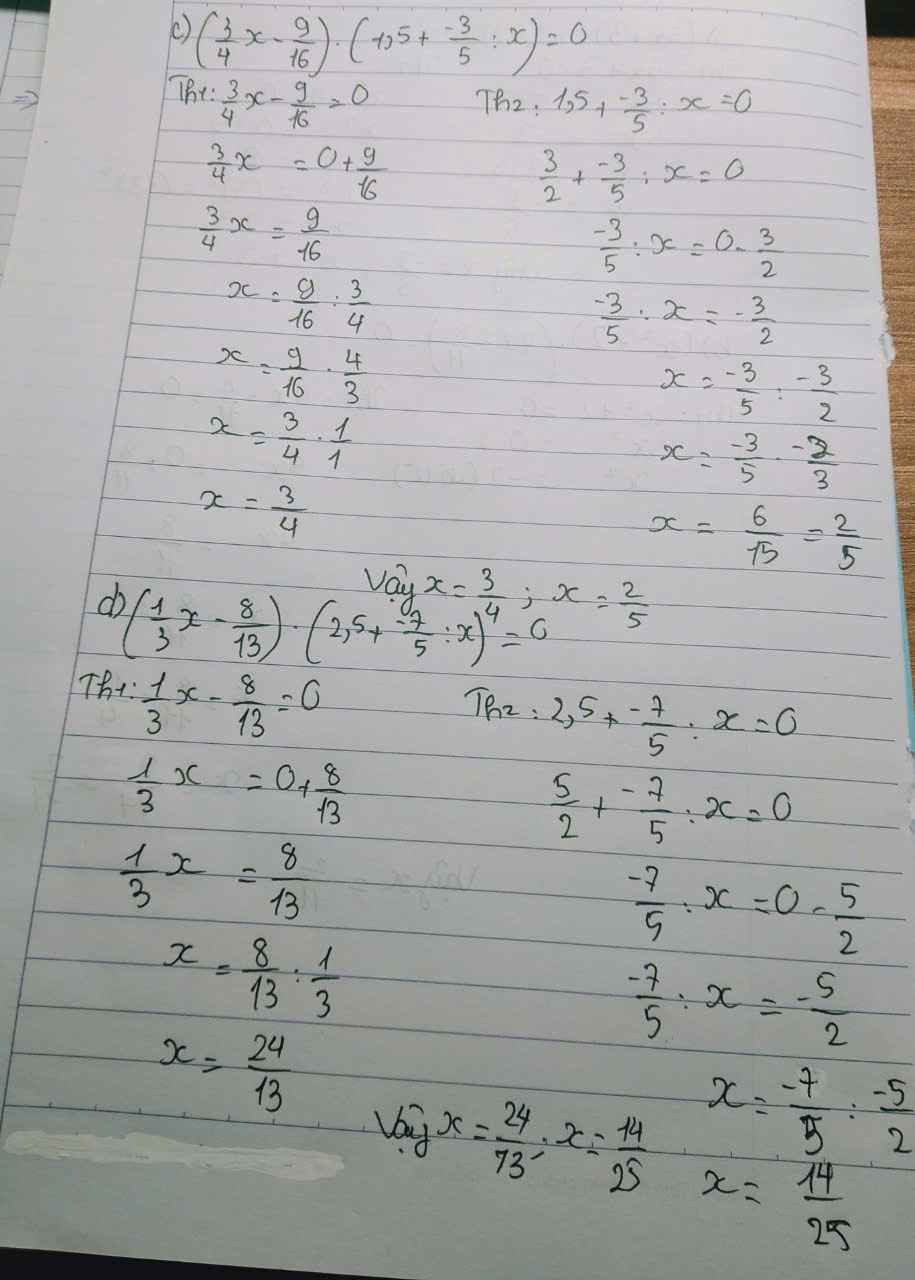 c) (3/4 x - 9/16) . (1,5 + -3/5 : x) = 0
Th1: 3/4 x - 9/16 = 0
3/4 x = 0 + 9/16
3/4 x = 9/16
x = 9/16 : 3/4
x = 9/16 . 4/3
x = 3/4 . 1/1
x = 3/4
Th2: 1,5 + -3/5 : x = 0
3/2 + -3/5 : x = 0
-3/5 : x = 0 - 3/2
-3/5 : x = -3/2
x = -3/5 : -3/2
x = -3/5 . -2/3
x = 6/15 = 2/5
Vậy x = 3/4 ; x = 2/5
d) (1/3 x - 8/13) . (2,5 + -7/5 : x) = 0
Th1: 1/3 x - 8/13 = 0
1/3 x = 0 + 8/13
1/3 x = 8/13
x = 8/13 : 1/3
x = 24/13
Th2: 2,5 + -7/5 : x = 0
5/2 + -7/5 : x = 0
-7/5 : x = 0 - 5/2
-7/5 : x = -5/2
x = -7/5 : -5/2
x = 14/25
Vậy x = 24/13 ; x = 14/25